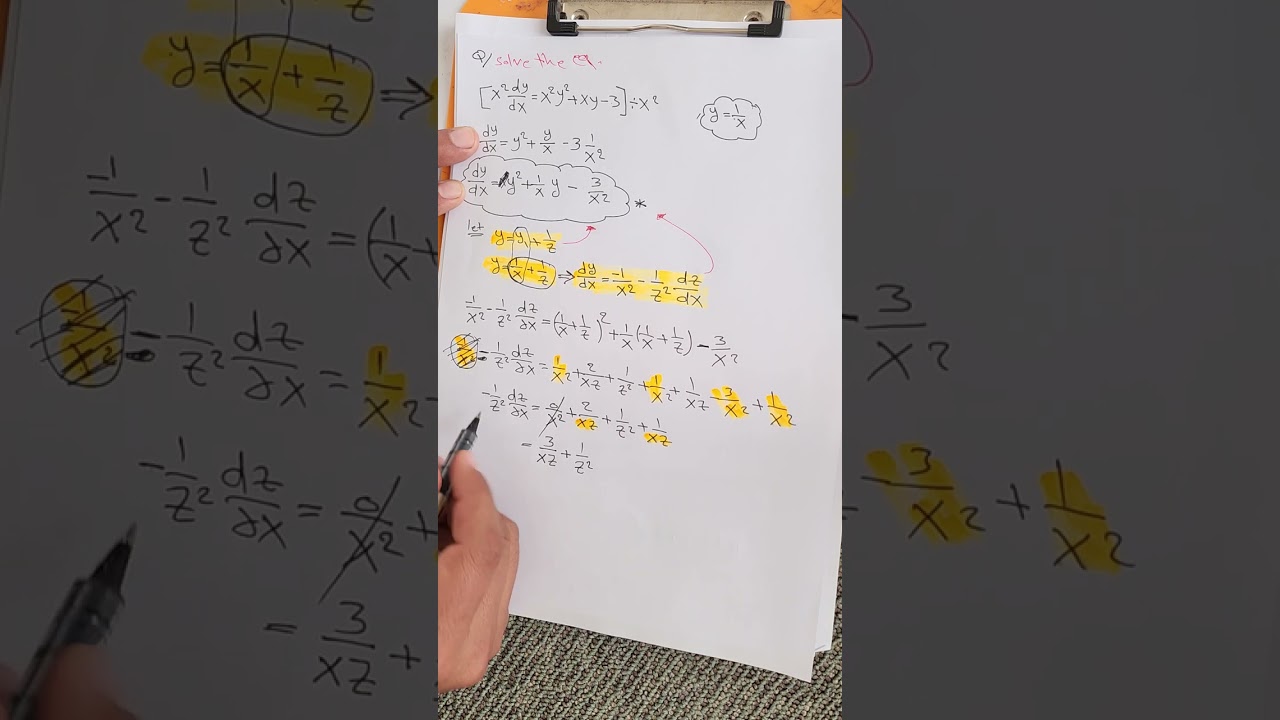 Q/ solve the eq.
[x² dy/dx = x²y² + xy - 3] ÷ x²
y = 1/x
dy/dx = y² + y/x - 3 1/x²
dy/dx = y² + 1/x y - 3/x² *
let y = y₁ + 1/z
y = 1/x + 1/z ⇒ dy/dx = -1/x² - 1/z² dz/dx
-1/x² - 1/z² dz/dx = (1/x + 1/z)² + 1/x (1/x + 1/z) - 3/x²
- 1/z² dz/dx = 1/x² + 2/xz + 1/z² + 1/x² + 1/xz - 3/x² + 1/x²
-1/z² dz/dx = 0/x² + 2/xz + 1/z² + 1/xz
= 3/xz + 1/z²